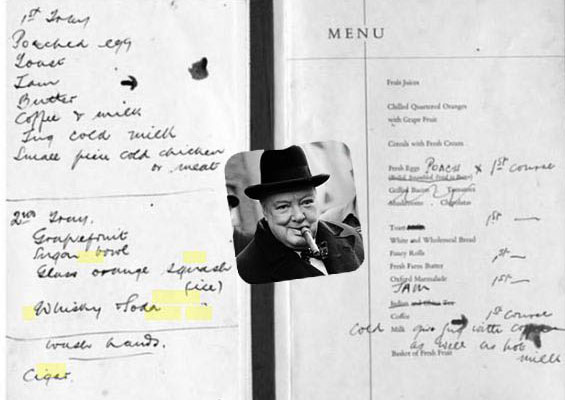 1st Tray
Poached egg
Toast
Jam
Butter
Coffee & milk
Jug cold milk
Small piece cold chicken
or meat
2nd Tray.
Grapefruit
Sugar bowl
Glass orange squash
(ice)
Whisky Soda
Wash hands.
Cigar.
MENU
Fruit Juices
Chilled Quartered Oranges
with Grape Fruit
Cereals with Fresh Cream
Fresh Eggs POACH × 1st course
(Boiled, Scrambled, Fried or Poached)
Grilled Bacon Tomatoes
Mushrooms Chipolatas
Toast 1st —
White and Wholemeal Bread
Fancy Rolls 1st —
Fresh Farm Butter
Oxford Marmalade 1st —
JAM
Indian and China Tea
Coffee 1st Course
Cold Milk jug with
as well as hot
milk
Basket of Fresh Fruit